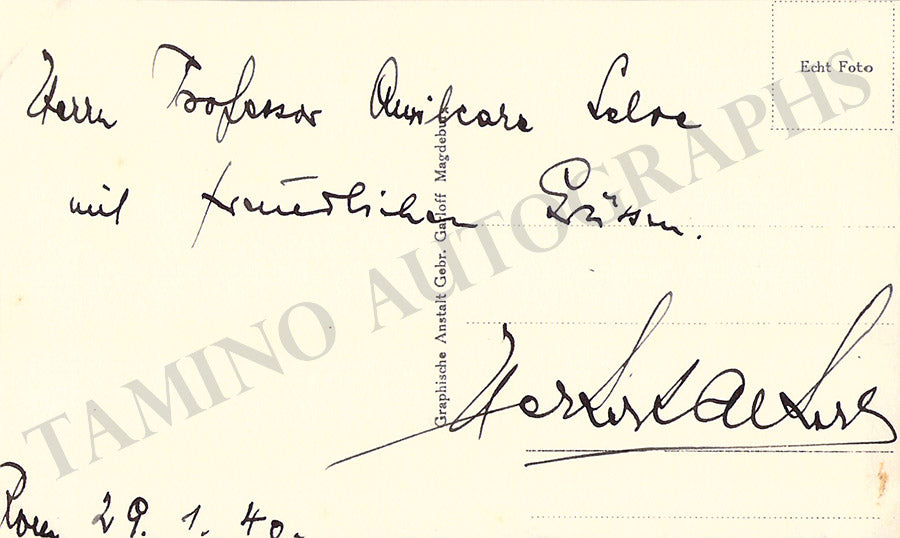 Echt Foto
Herrn Professor Amilcare Zelve
mit freundlichen Grüssen.
Graphische Anstalt Gebr. Garloff Magdeburg
Herbert Albert
Rom 29. 1. 40.
TAMINO AUTOGRAPHS